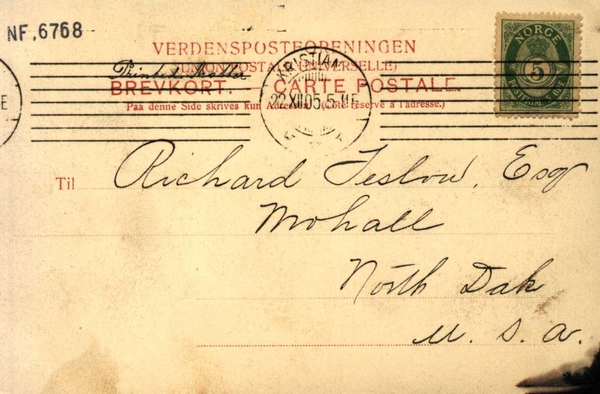 NF.6768
VERDENSPOSTFORENINGEN
(UNION POSTALE UNIVERSELLE)
Printed Matter
BREVKORT. CARTE POSTALE.
Paa denne Side skrives kun Adressen. (Côté réservé à l'adresse.)
KRISTIANIA
22 XII 05. 5-11 E
NORGE
5
POSTFRIM. 5 ØRE
Til Richard Teslow, Esq
Mohall
North Dak
U. S. A.